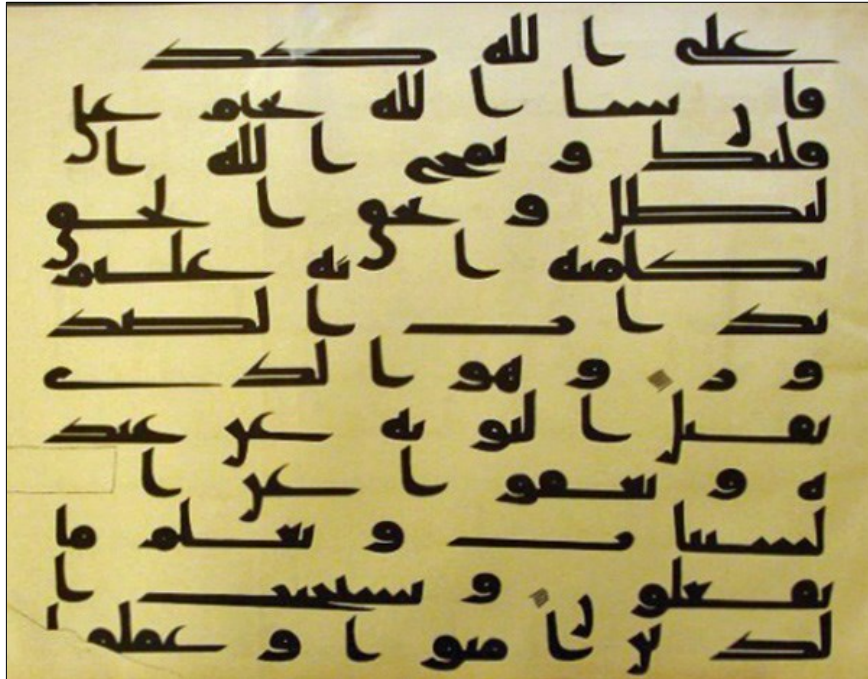 على الله كذ
فان يشا الله يختم عل
قلبك و يمح الله ا
لبطل و يحق الحق
بكلمته انه عليم
بذات الصد
ور وهو الذي
يقبل التوبه عن عبد
ه و يعفوا عن ا
لسيات و يعلم ما
تفعلون و يستجيب ا
لذين امنوا و عملوا